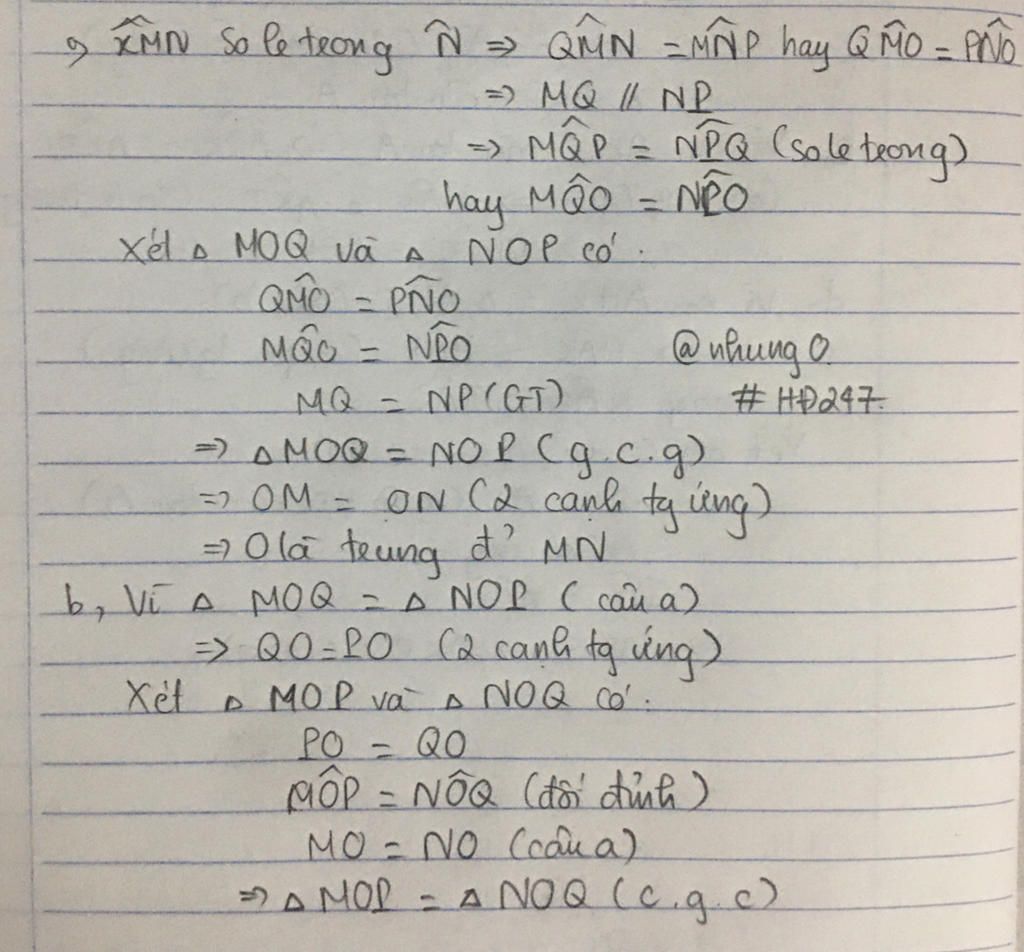 a, x̂MN so le trong N̂ ⇒ QM̂N = MN̂P hay QM̂O = PN̂O
⇒ MQ // NP
⇒ MQ̂P = NP̂Q (so le trong)
hay MQ̂O = NP̂O
Xét △ MOQ và △ NOP có :
QM̂O = PN̂O
MQ̂O = NP̂O @nhung0
MQ = NP (GT) #HĐ247
⇒ △MOQ = NOP (g.c.g)
⇒ OM = ON (2 cạnh tg ứng)
⇒ O là trung đ' MN
b, Vì △ MOQ = △ NOP (câu a)
⇒ QO = PO (2 cạnh tg ứng)
Xét △ MOP và △ NOQ có :
PO = QO
MÔP = NÔQ (đối đỉnh)
MO = NO (câu a)
⇒ △MOP = △NOQ (c.g.c)